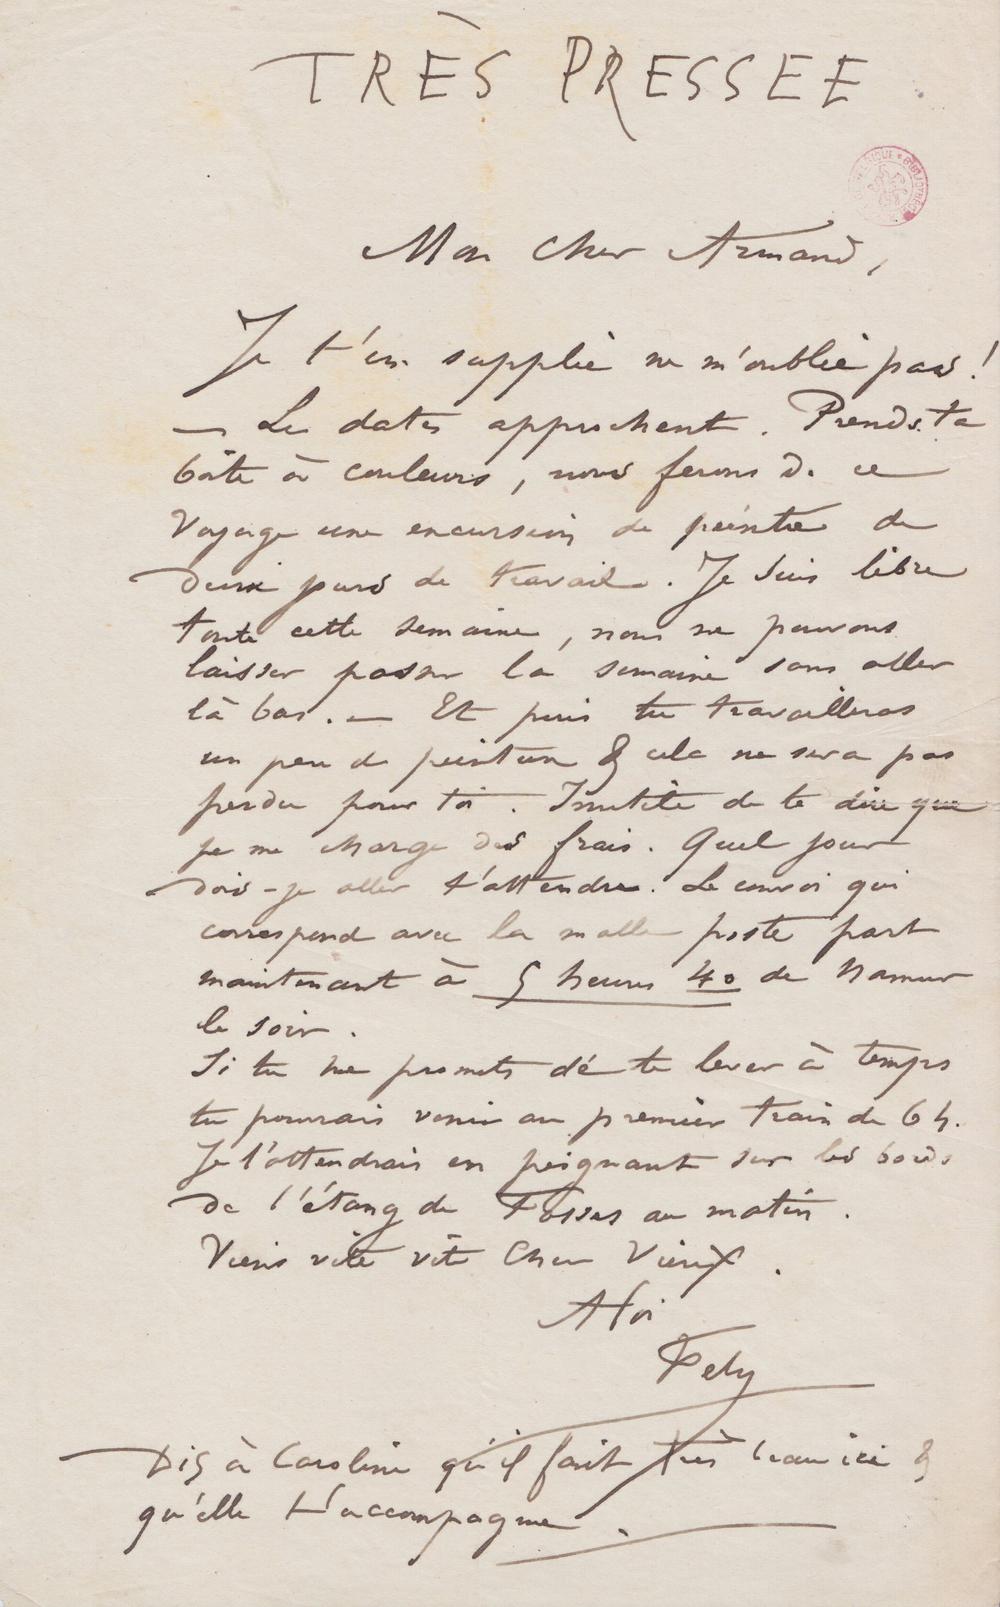 TRÈS PRESSEE
Mon Cher Armand,
Je t'en supplie ne m'oublie pas !
— Les dates approchent. Prends ta
boîte à couleurs, nous ferons de ce
voyage une excursion de peintre de
deux jours de travail. Je suis libre
toute cette semaine, nous ne pouvons
laisser passer la semaine sans aller
là bas. — Et puis tu travailleras
un peu de peinture & cela ne sera pas
perdu pour toi. Inutile de te dire que
je me charge des frais. Quel jour
dois-je aller t'attendre. Le convoi qui
correspond avec la malle poste part
maintenant à 5 heures 40 de Namur
le soir.
Si tu me promets de te lever à temps
tu pourrais venir au premier train de 6 h.
Je t'attendrais en peignant sur les bords
de l'étang de Fosses au matin.
Viens vite vite Cher Vieux.
A toi
Fély
Dis à Caroline qu'il fait très beau ici &
qu'elle t'accompagne.